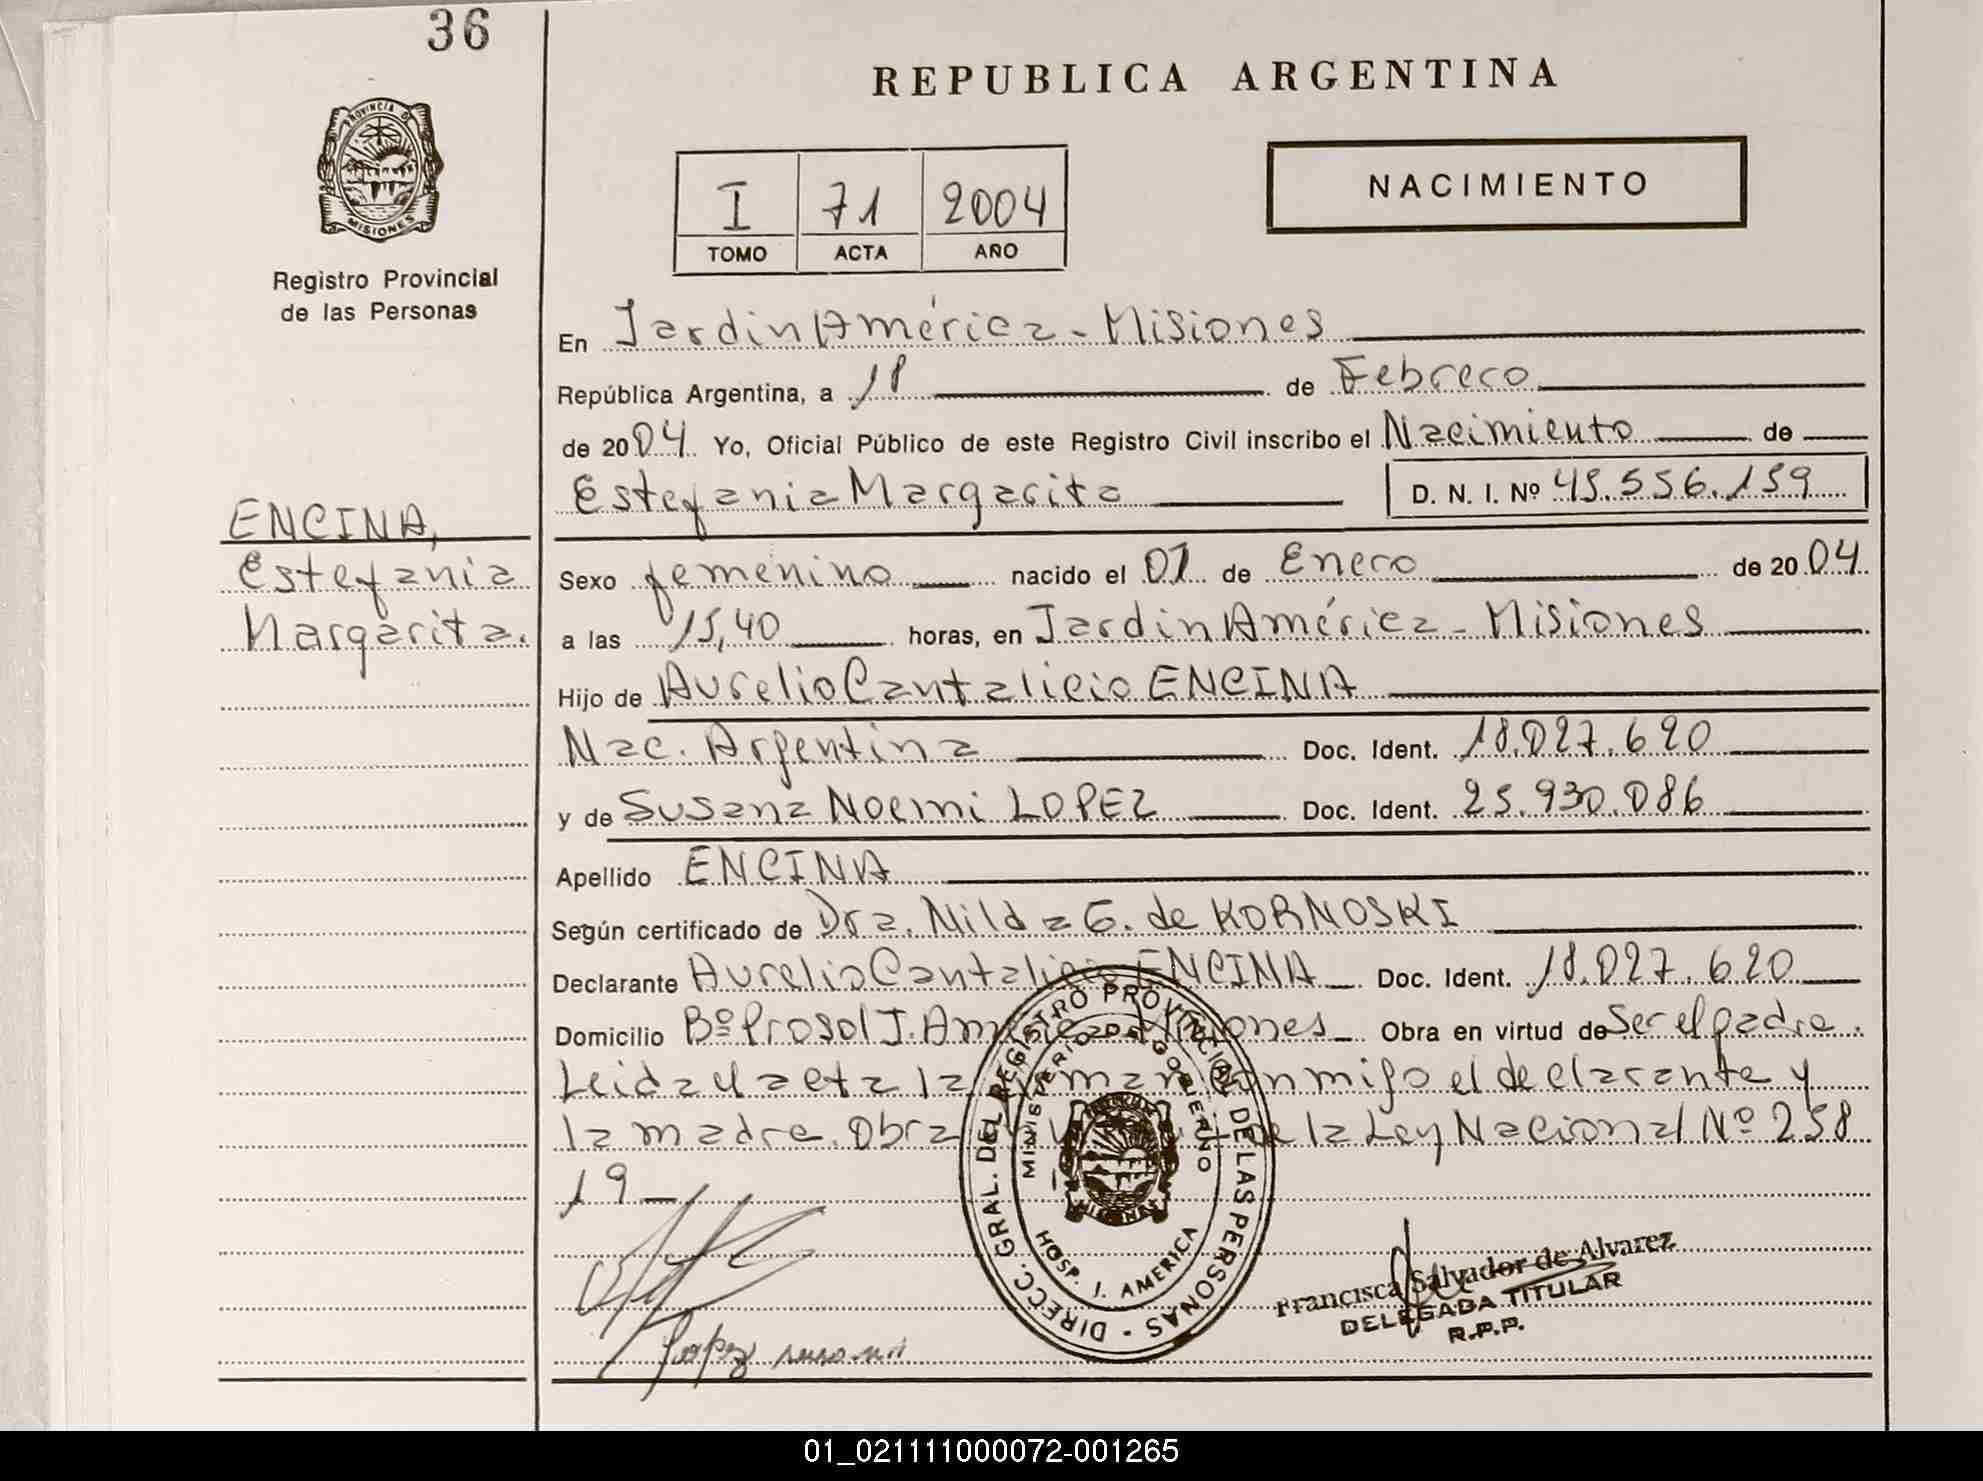 36
REPUBLICA ARGENTINA
PROVINCIA DE
MISIONES
Registro Provincial
de las Personas
I 71 2004
TOMO ACTA AÑO
NACIMIENTO
En Jardin América - Misiones
República Argentina, a 18 de Febrero
de 2004 Yo, Oficial Público de este Registro Civil inscribo el Nacimiento de
Estefania Margarita D. N. I. Nº 45.556.159
ENCINA,
Estefania
Margarita.
Sexo femenino nacido el 01 de Enero de 2004
a las 15,40 horas, en Jardin América - Misiones
Hijo de Aurelio Cantalicio ENCINA
Nac. Argentina Doc. Ident. 18.027.620
y de Susana Noemi LOPEZ Doc. Ident. 25.930.086
Apellido ENCINA
Según certificado de Dra. Nilda G. de KORNOSKI
Declarante Aurelio Cantalicio ENCINA Doc. Ident. 18.027.620
Domicilio Bº Prosol J. América Misiones Obra en virtud de Ser el padre.
Leida el acta la firman conmigo el declarante y
la madre. Obra de la Ley Nacional Nº 258
19
DIRECC. GRAL. DEL REGISTRO PROVINCIAL DE LAS PERSONAS
MINISTERIO DE GOBIERNO
HOSP. J. AMERICA
MISIONES
Lopez susana
Francisca Salvador de Alvarez
DELEGADA TITULAR
R.P.P.
01_021111000072-001265